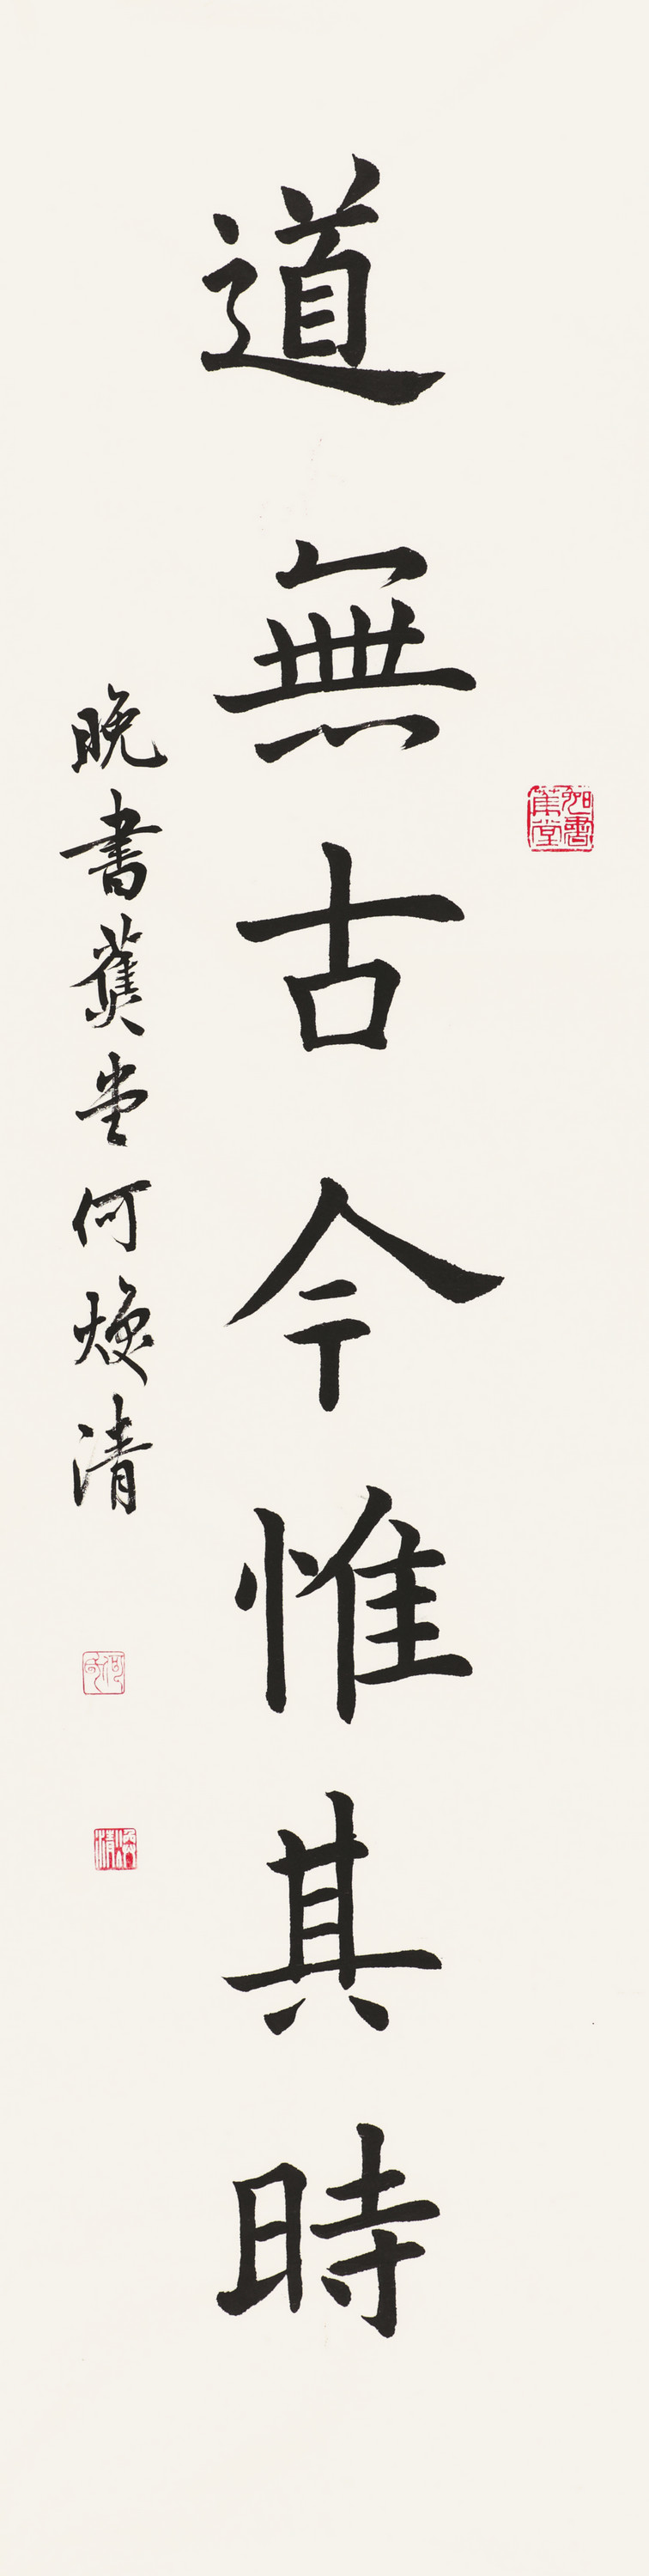 道無古今惟其時
晚書舊堂何煥清